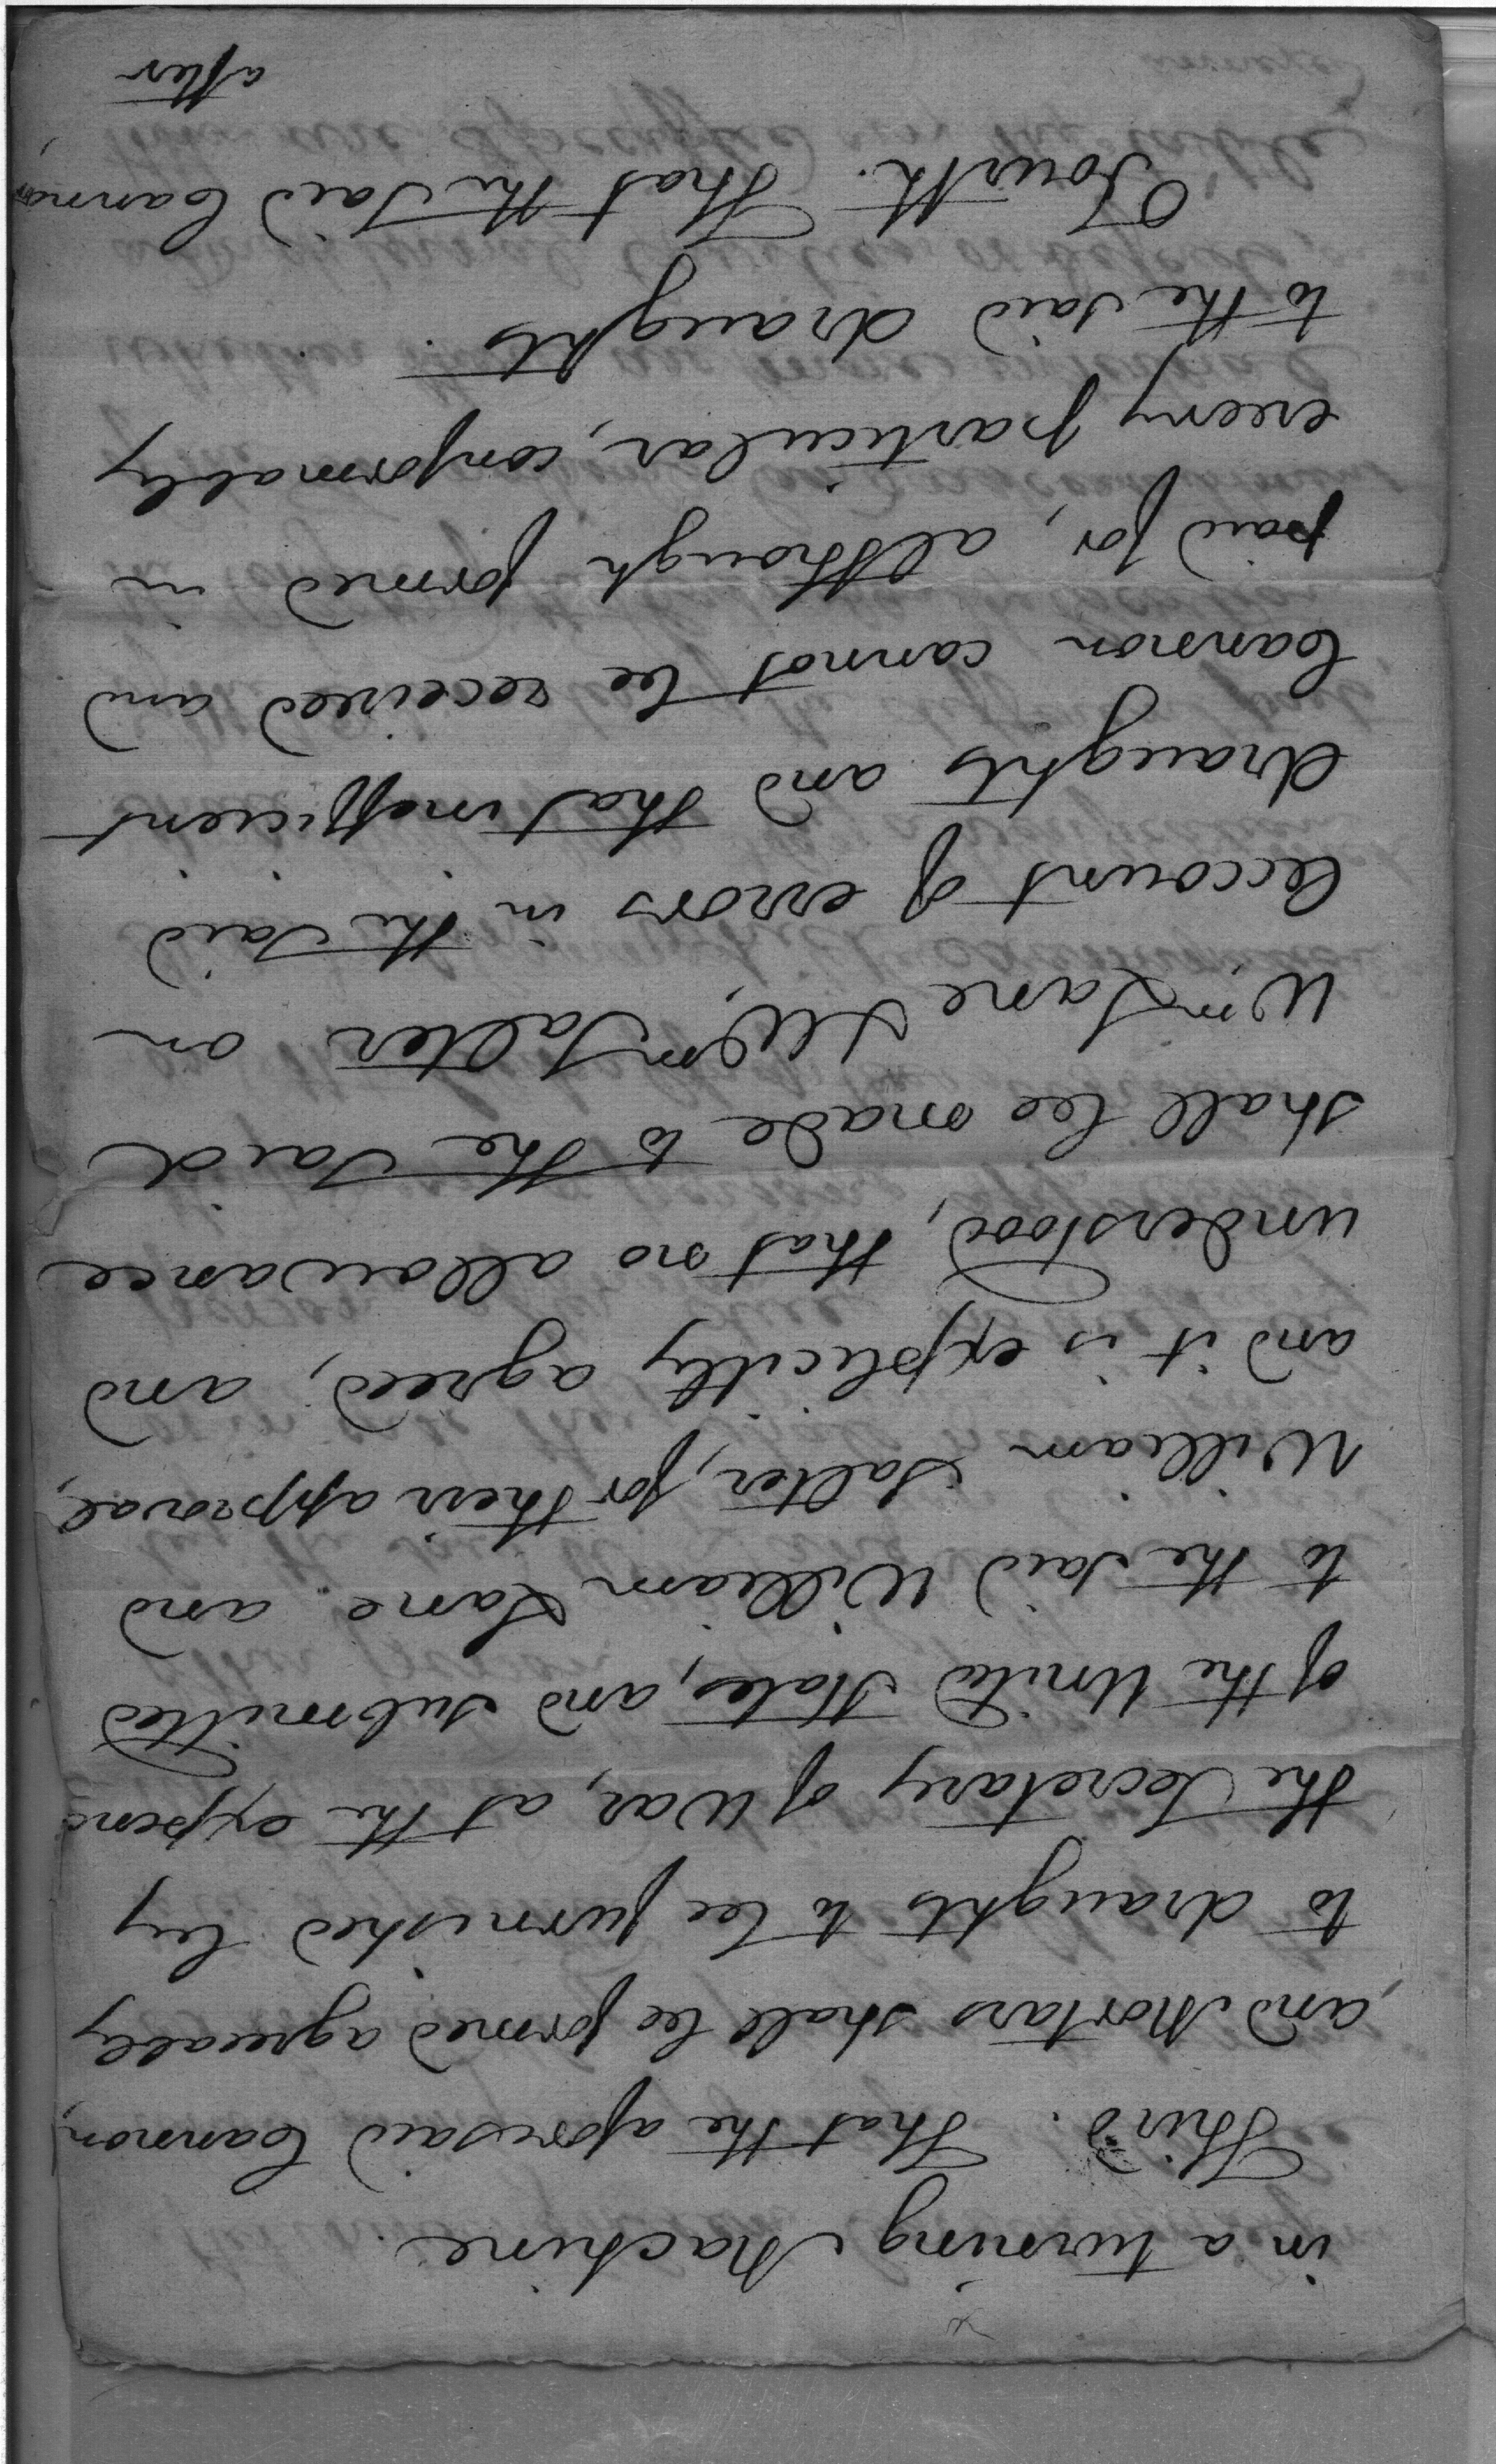 in a turning Machine.
Third. That the aforesaid Cannon,
and Mortars shall be formed agreeably
to draughts to be furnished by
the Secretary of War, at the expence
of the United States, and submitted
to the said William Lane and
William Salter, for their approval,
and it is explicitly agreed, and
understood, that no allowance
shall be made to the said
Wm Lane & Wm Salter on
Account of errors in the said
draughts and that inefficient
Cannon cannot be received and
paid for, although formed in
every particular, conformably
to the said draughts.
Fourth. That the said Cannon,
after